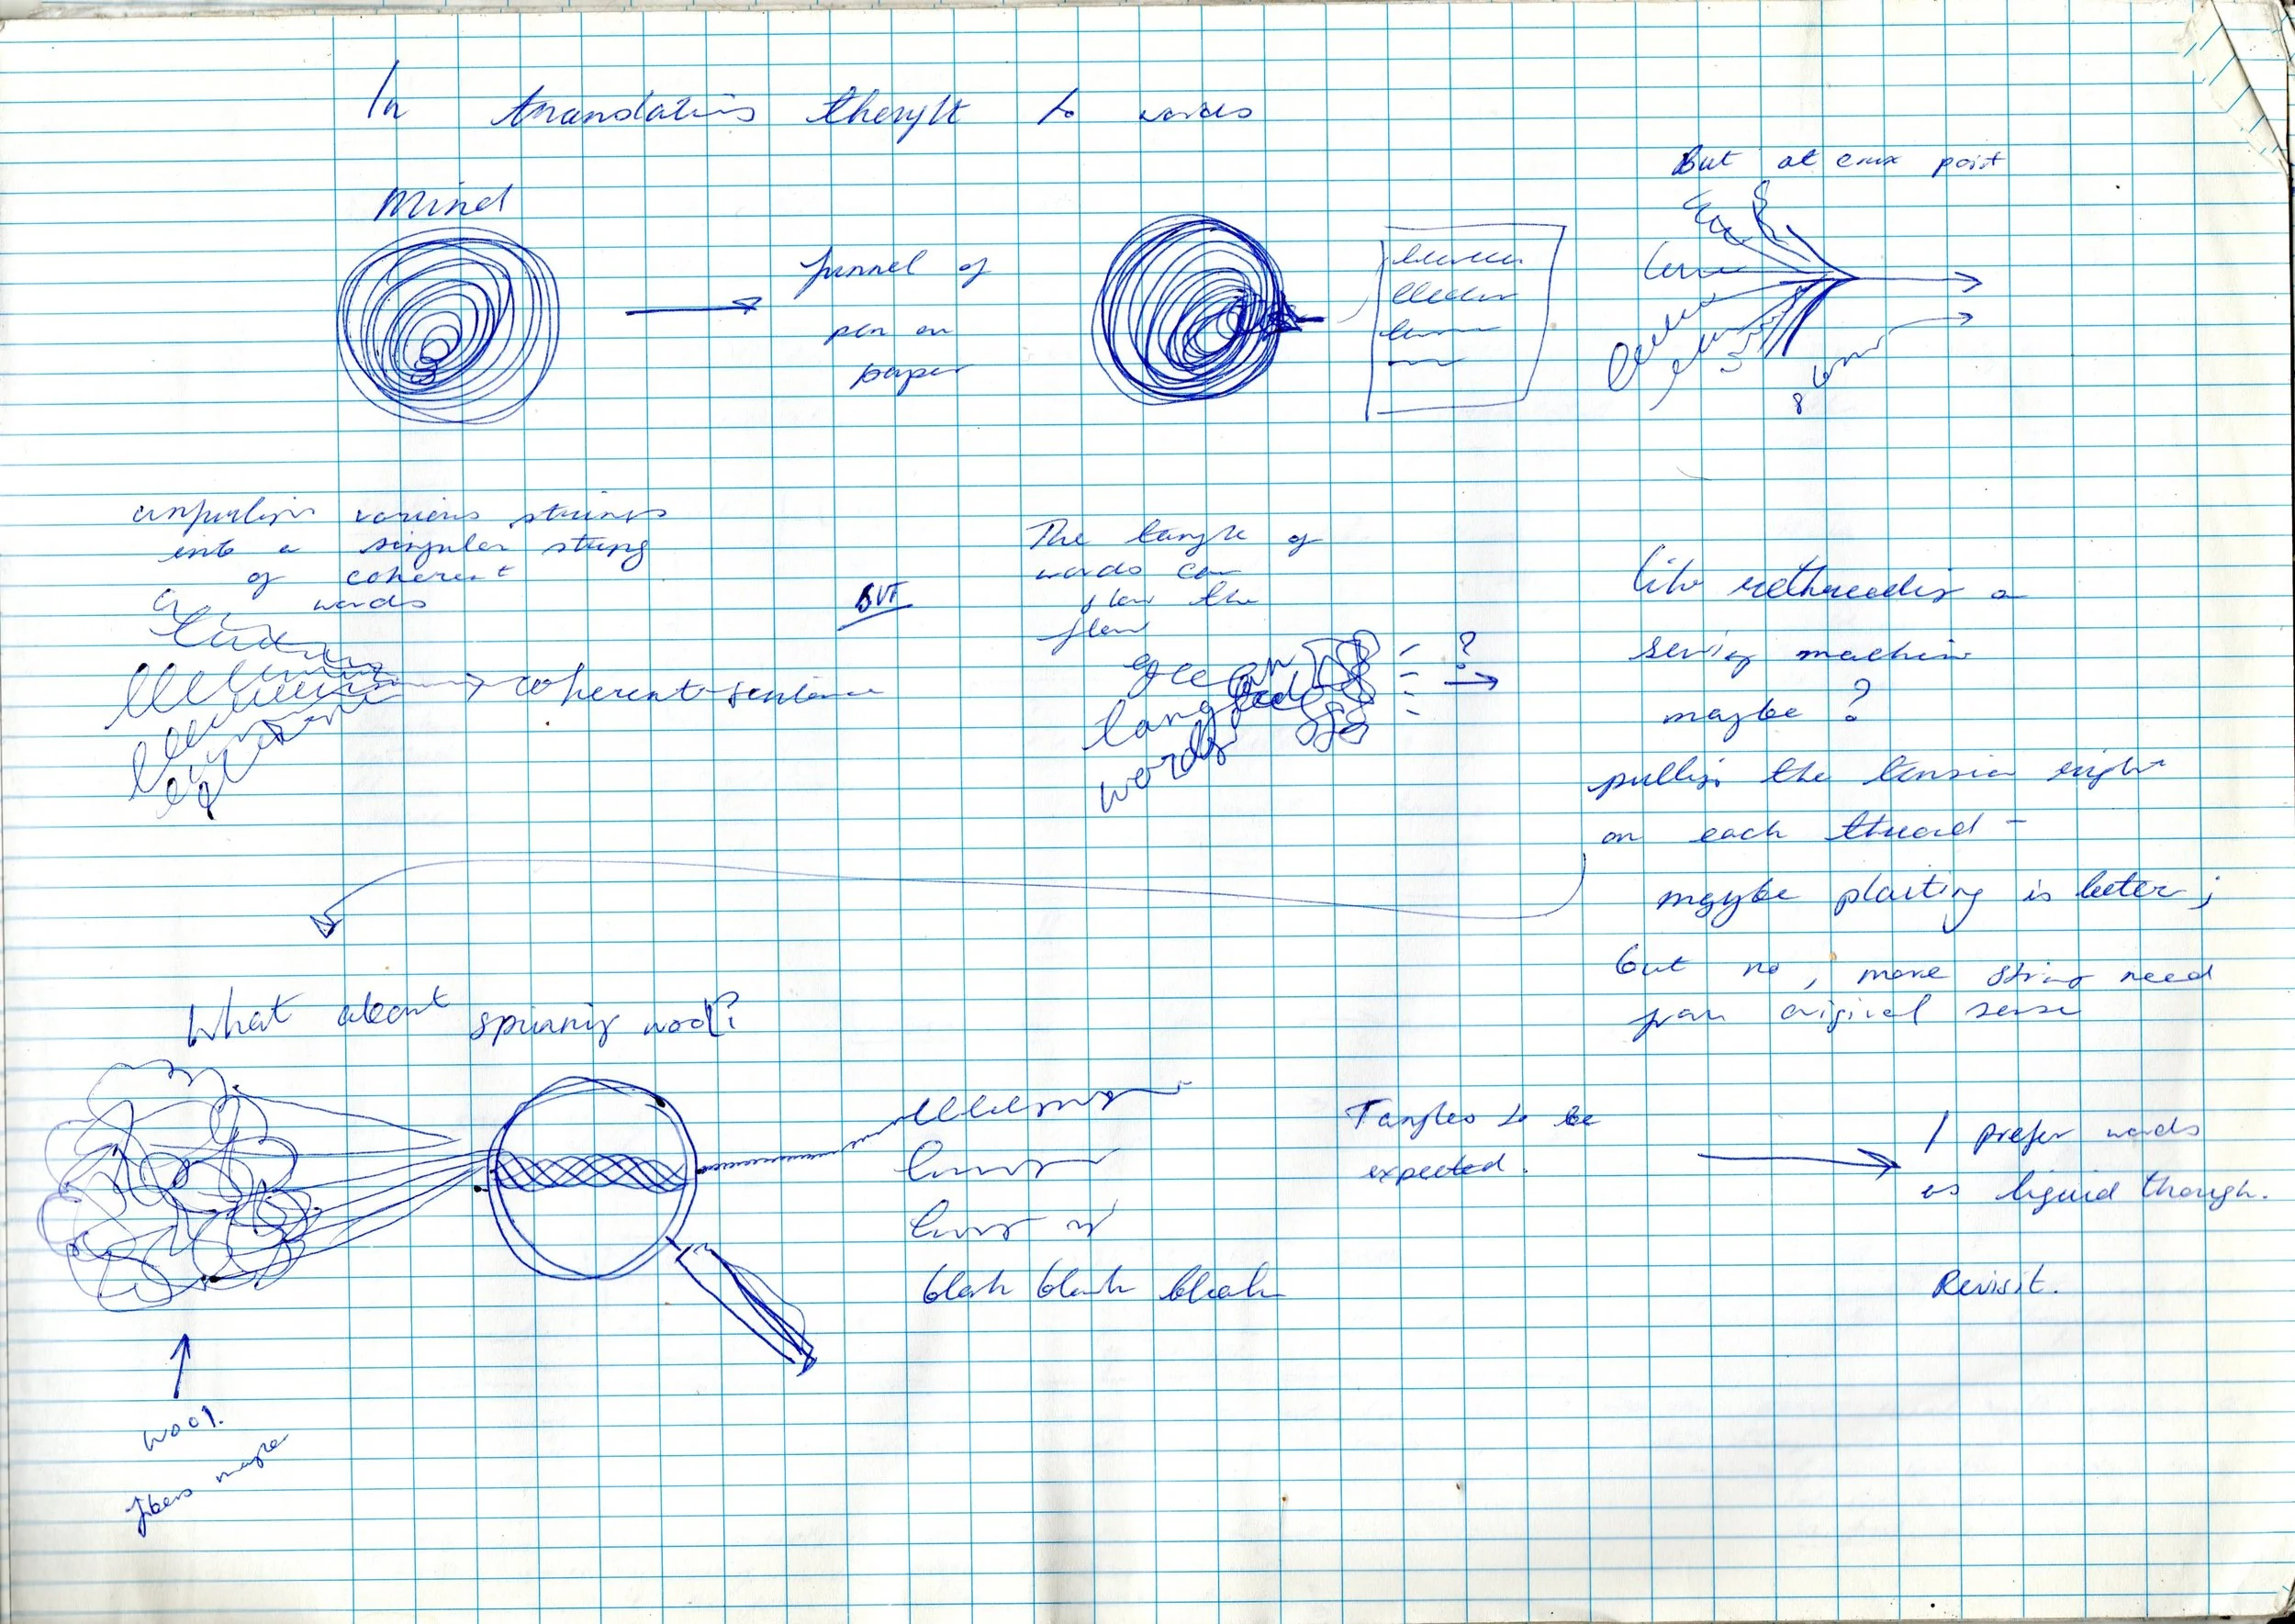 In translating thought to words
Mind
funnel of
pen on
paper
But at crux point
various strings
into a singular string
of coherent
words
coherent sentence
BUT
The tangle of
words can
slow the
flow
tangled
words
?
like rethreading a
sewing machine
maybe ?
pulling the tension right
on each thread -
maybe plaiting is better ;
but no , more string need
from original sense
What about spinning wool?
blah blah blah
Tangles to be
expected.
I prefer words
as liquid though.
Revisit.
wool.
fibers maybe